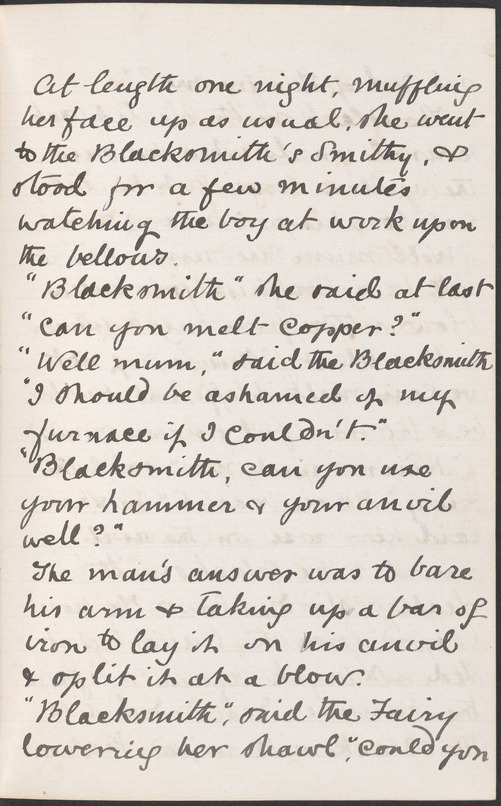 At length one night, muffling
her face up as usual, she went
to the Blacksmith's Smithy, &
stood for a few minutes
watching the boy at work upon
the bellows
"Blacksmith" she said at last
"can you melt copper?"
"Well mum," said the Blacksmith
"I should be ashamed of my
furnace if I couldn't."
"Blacksmith, can you use
your hammer & your anvil
well?"
The man's answer was to bare
his arm & taking up a bar of
iron to lay it on his anvil
& split it at a blow.
"Blacksmith", said the Fairy
lowering her shawl, "could you